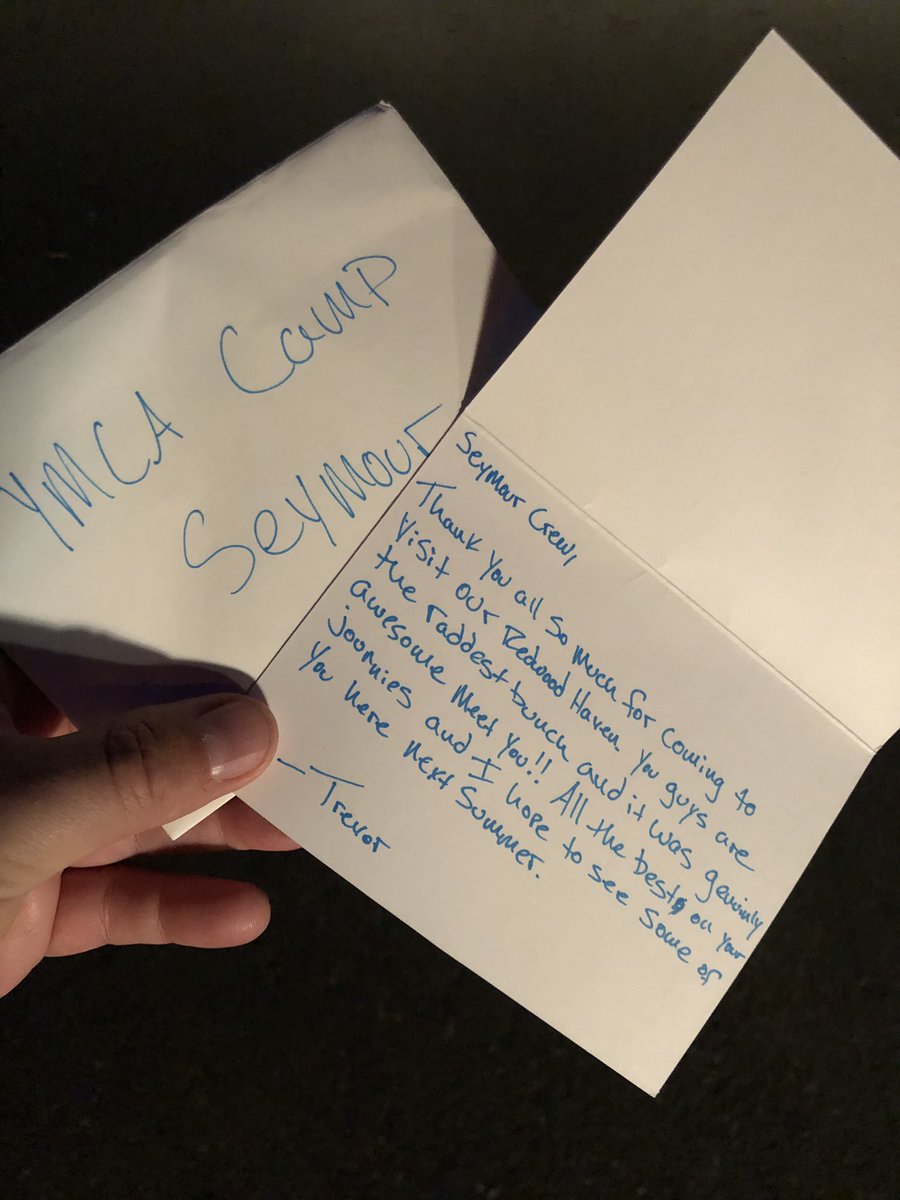 YMCA Camp
Seymour
Seymour Crew,
Thank you all so much for coming to
visit our Redwood Haven you guys are
the raddest bunch and it was genuinly
awesome meet you!! All the best, on your
joornies and I hope to see some of
you here next summer.
— Trevor